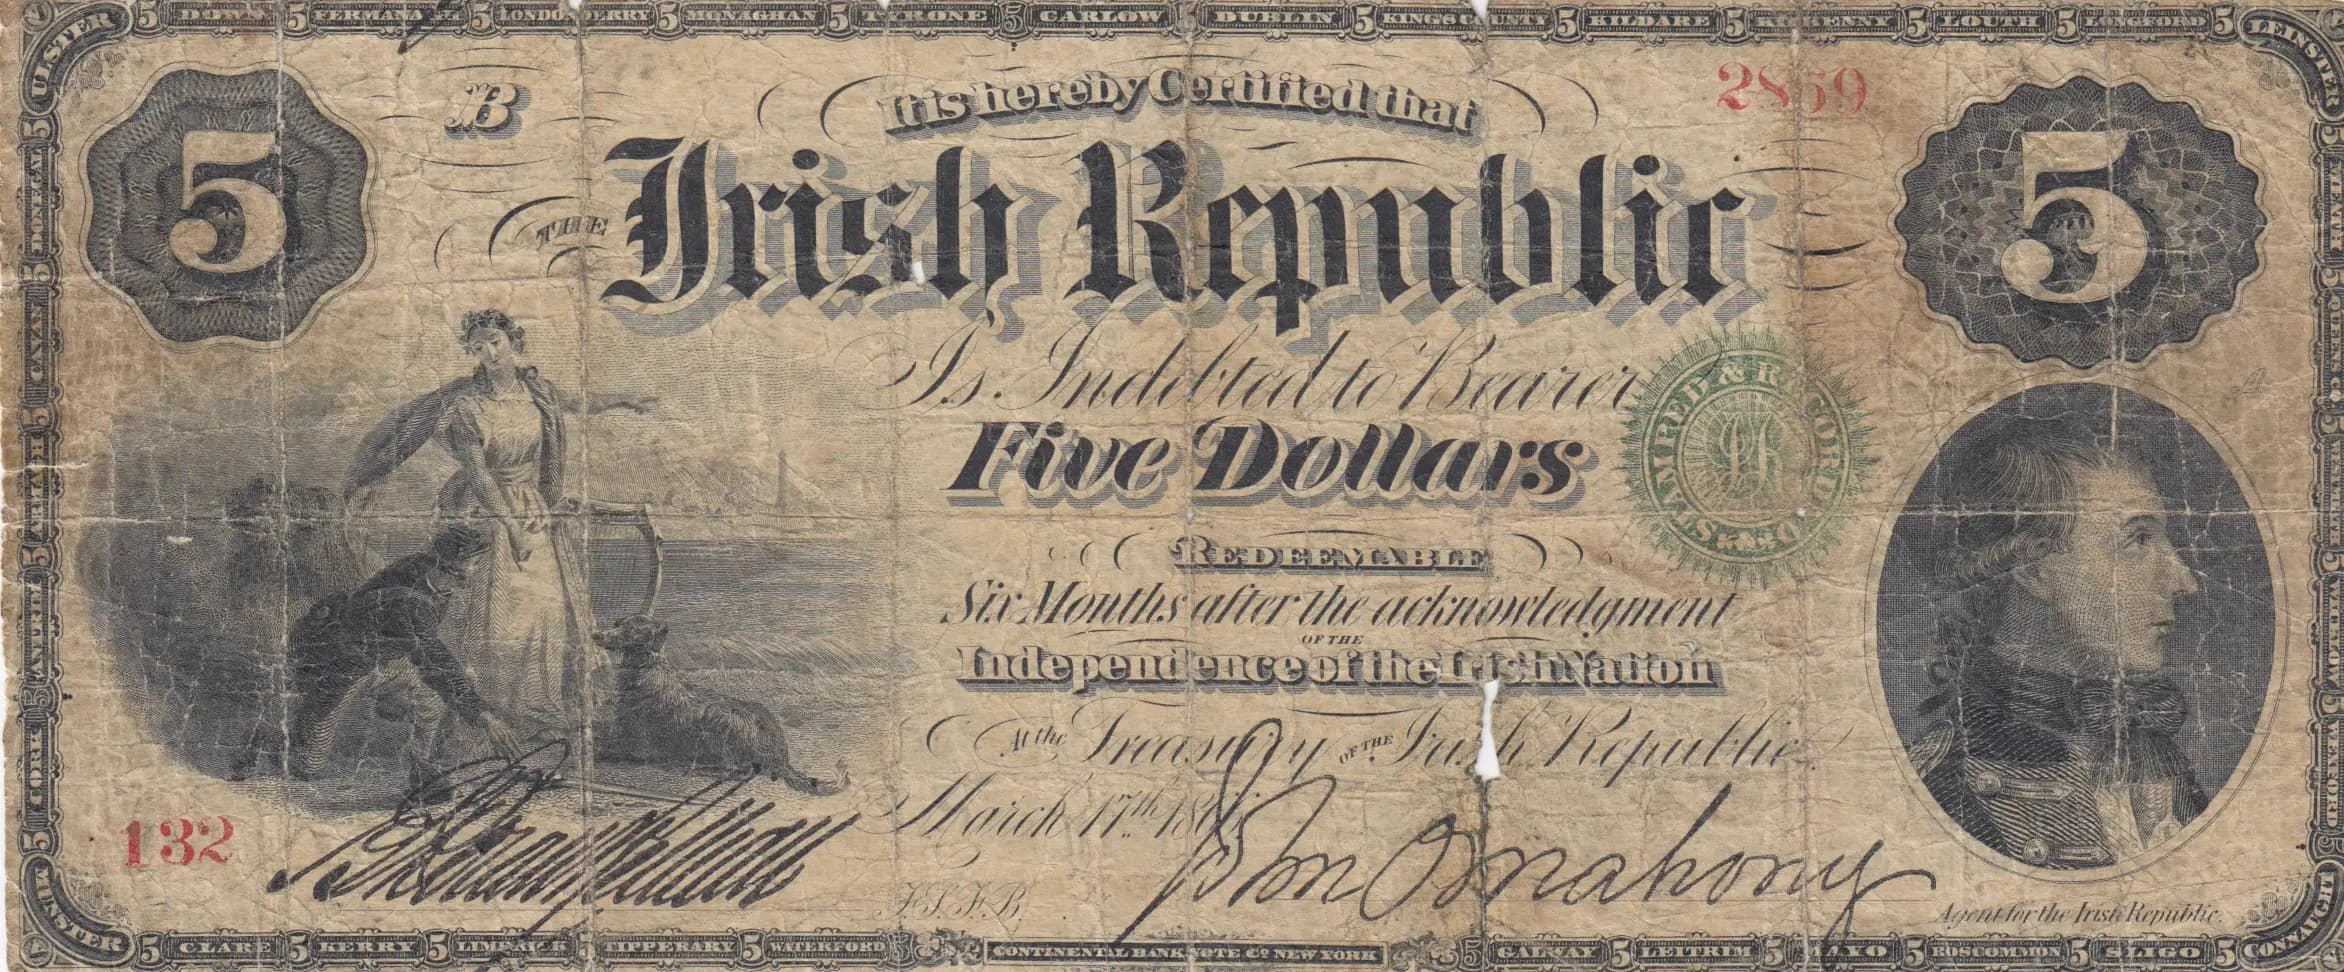 ULSTER 5 DOWN 5 FERMANAGH 5 LONDONDERRY 5 MONAGHAN 5 TYRONE 5 CARLOW 5 DUBLIN 5 KING'S COUNTY 5 KILDARE 5 KILKENNY 5 LOUTH 5 LONGFORD 5 LEINSTER
5 DONEGAL 5 CAVAN 5 ARMAGH 5 ANTRIM 5 CORK 5
MEATH
WICKLOW
WEXFORD
5
B
2859
5
It is hereby Certified that
THE Irish Republic
Is Indebted to Bearer
Five Dollars
REDEEMABLE
Six Months after the acknowledgment
OF THE
Independence of the Irish Nation
At the Treasury OF THE Irish Republic
March 17th
132
John O'Mahony
F.S.F.B.
Agent for the Irish Republic.
MUNSTER 5 CLARE 5 KERRY 5 LIMERICK 5 TIPPERARY 5 WATERFORD 5 CONTINENTAL BANK NOTE CO NEW YORK 5 GALWAY 5 LEITRIM 5 MAYO 5 ROSCOMMON 5 SLIGO 5 CONNAUGHT